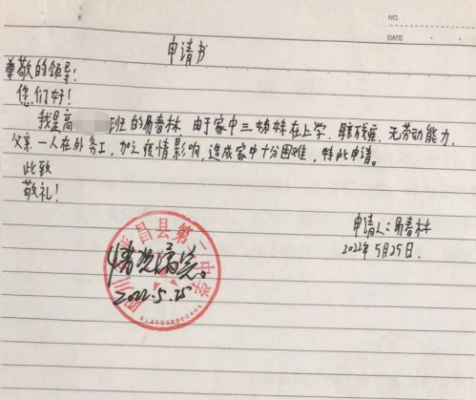 NO.
DATE
申请书
尊敬的领导:
您们好!
我是高 班的易春林,由于家中三姊妹在上学, 残疾,无劳动能力,
父亲一人在外务工,加之疫情影响,造成家中十分困难,特此申请。
此致
敬礼!
申请人:易春林
2022年5月25日.
四川 昌县第二中学
情况属实。
2022.5.25